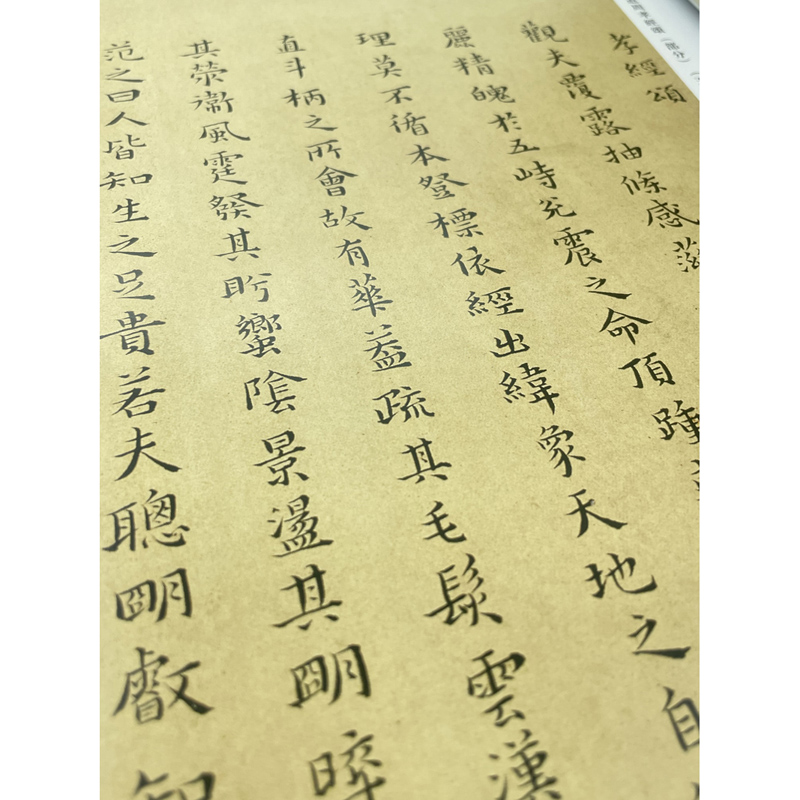 周孝經頌（部分）
孝經頌
觀夫覆露抽條感
麗精魄於五峙兊震之命頂踵
理莫不循本登標依經出緯象天地之自
直斗柄之所會故有華葢疏其毛髮雲漢
其滎衞風霆發其肸蠁陰景盪其明
范之曰人皆知生之足貴若夫聰明叡知